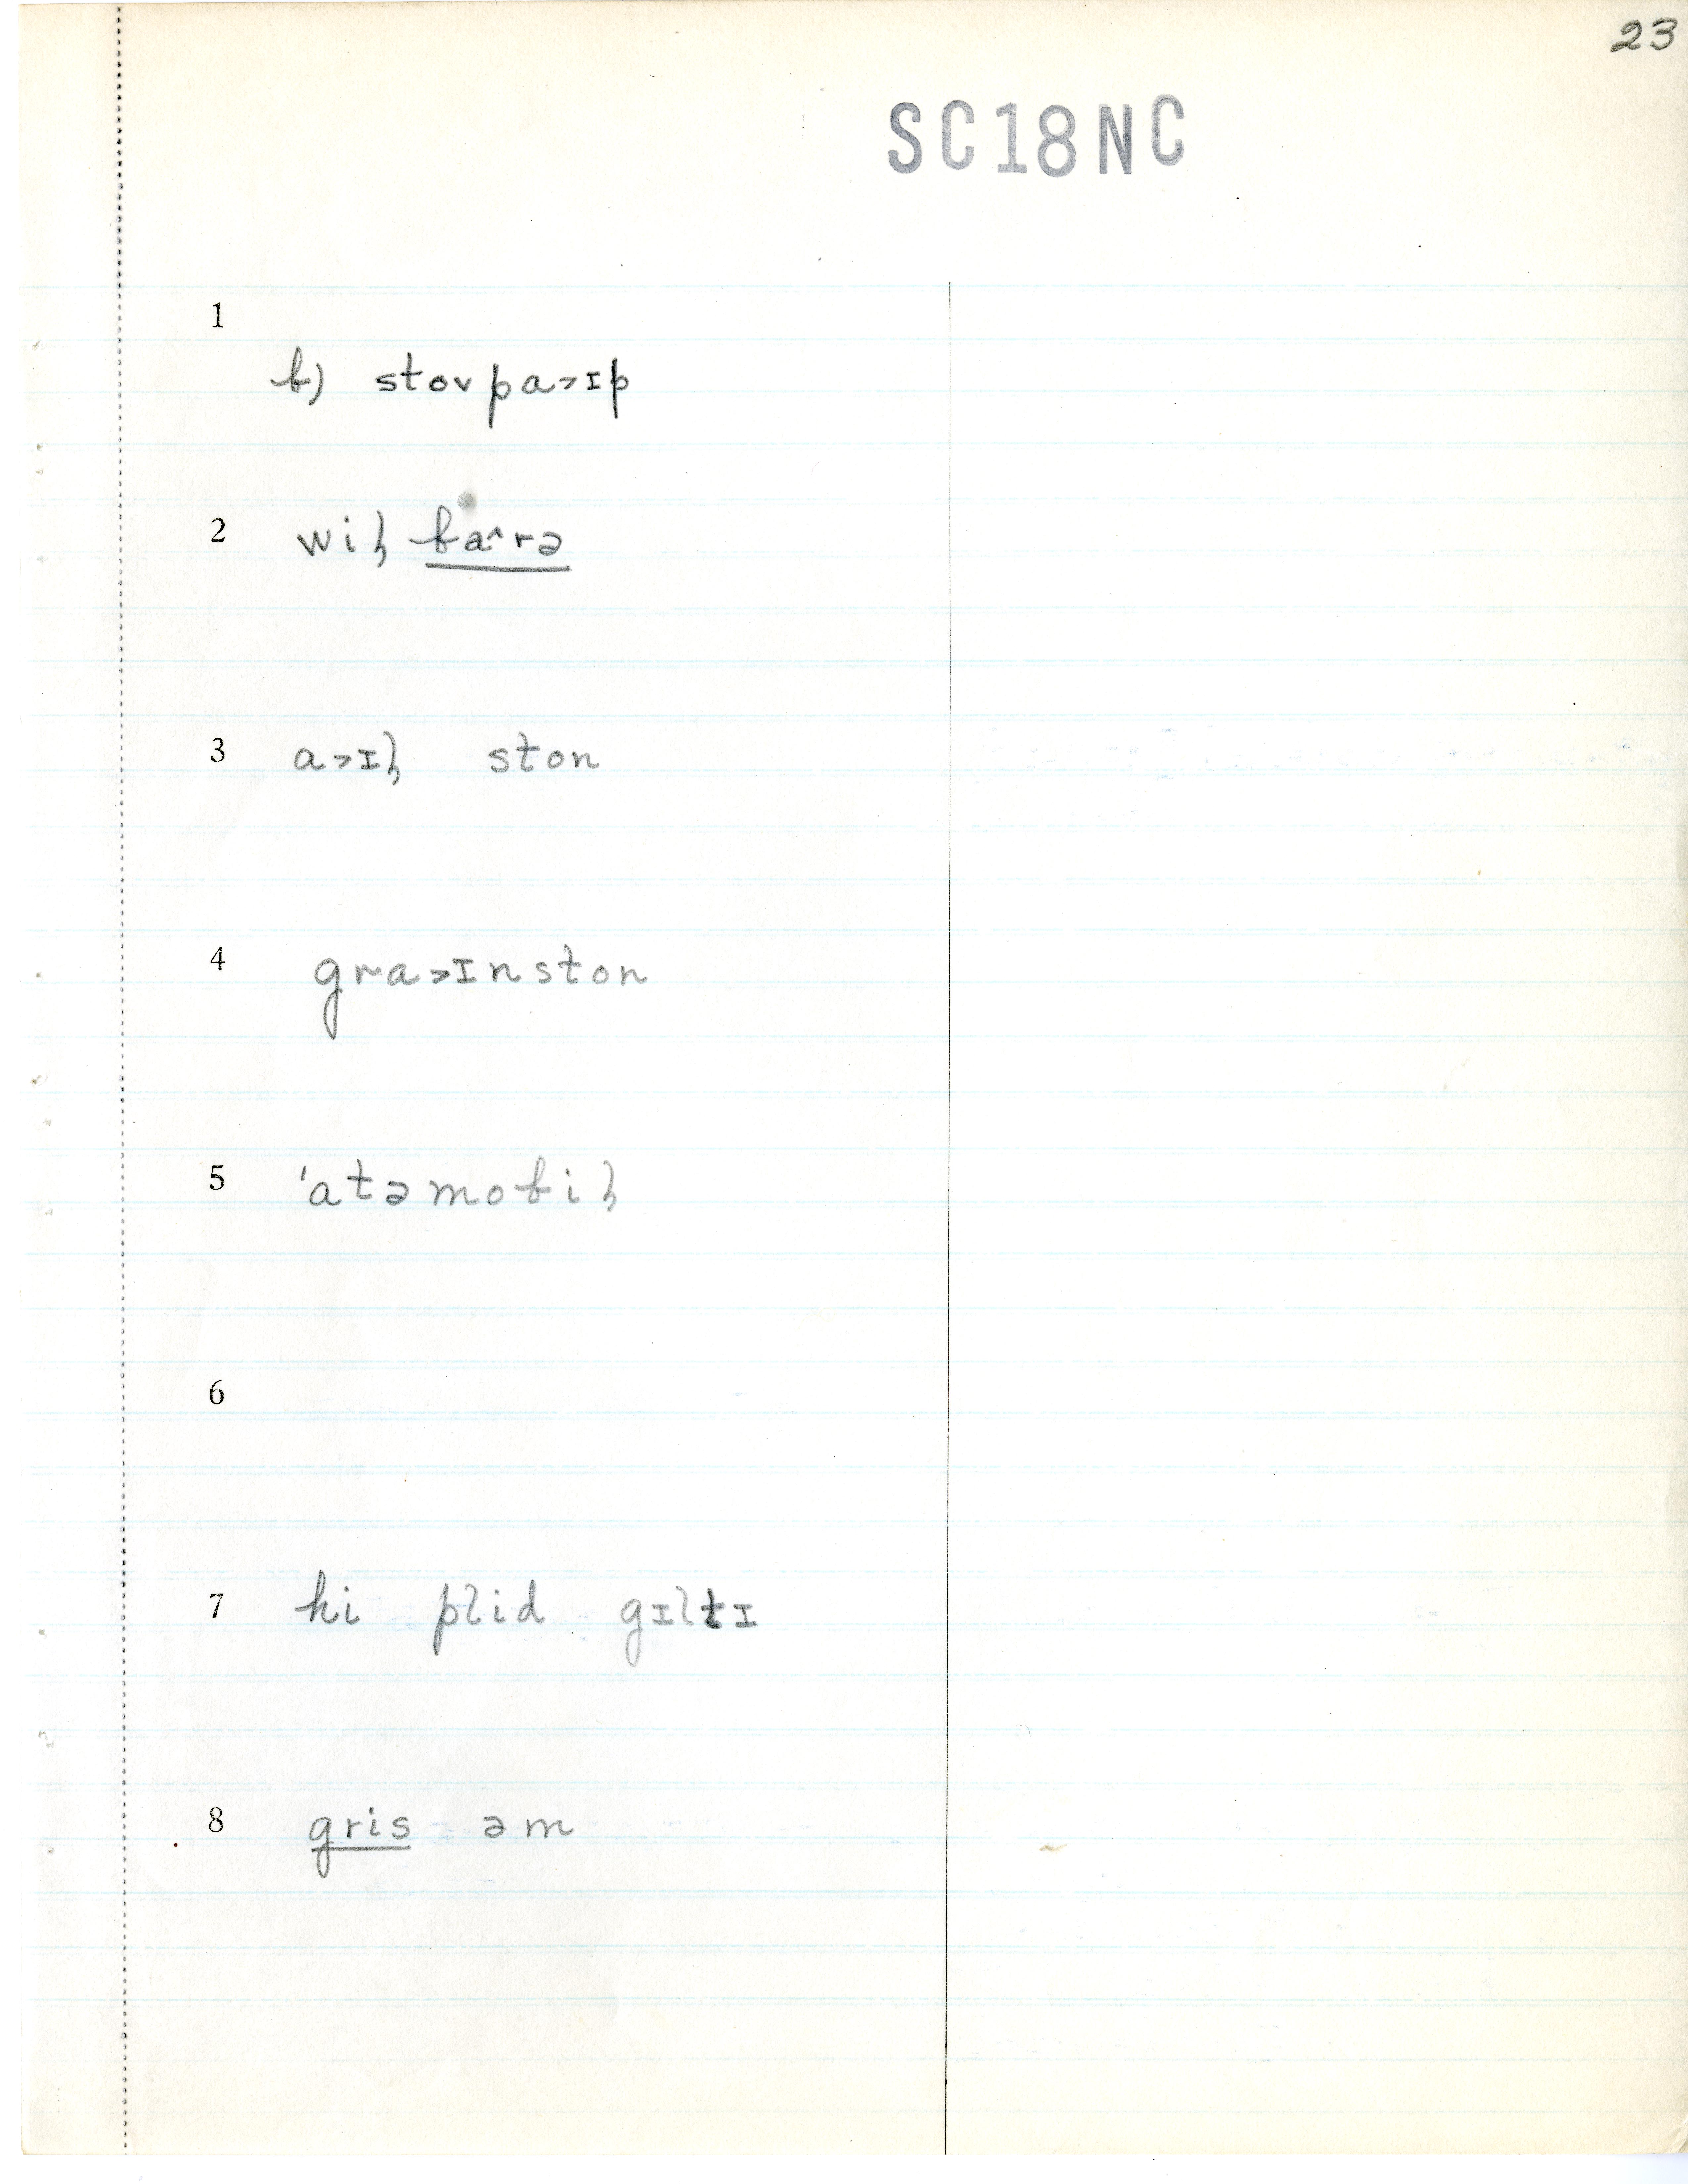 23
SC18NC
1
b) stovpa>ɪp
2 wiɫ ba^rə
3 a>ɪɫ ston
4 gra>ɪnston
5 'atəmobiɫ
6
7 hi plid gɪltɪ
8 gris əm